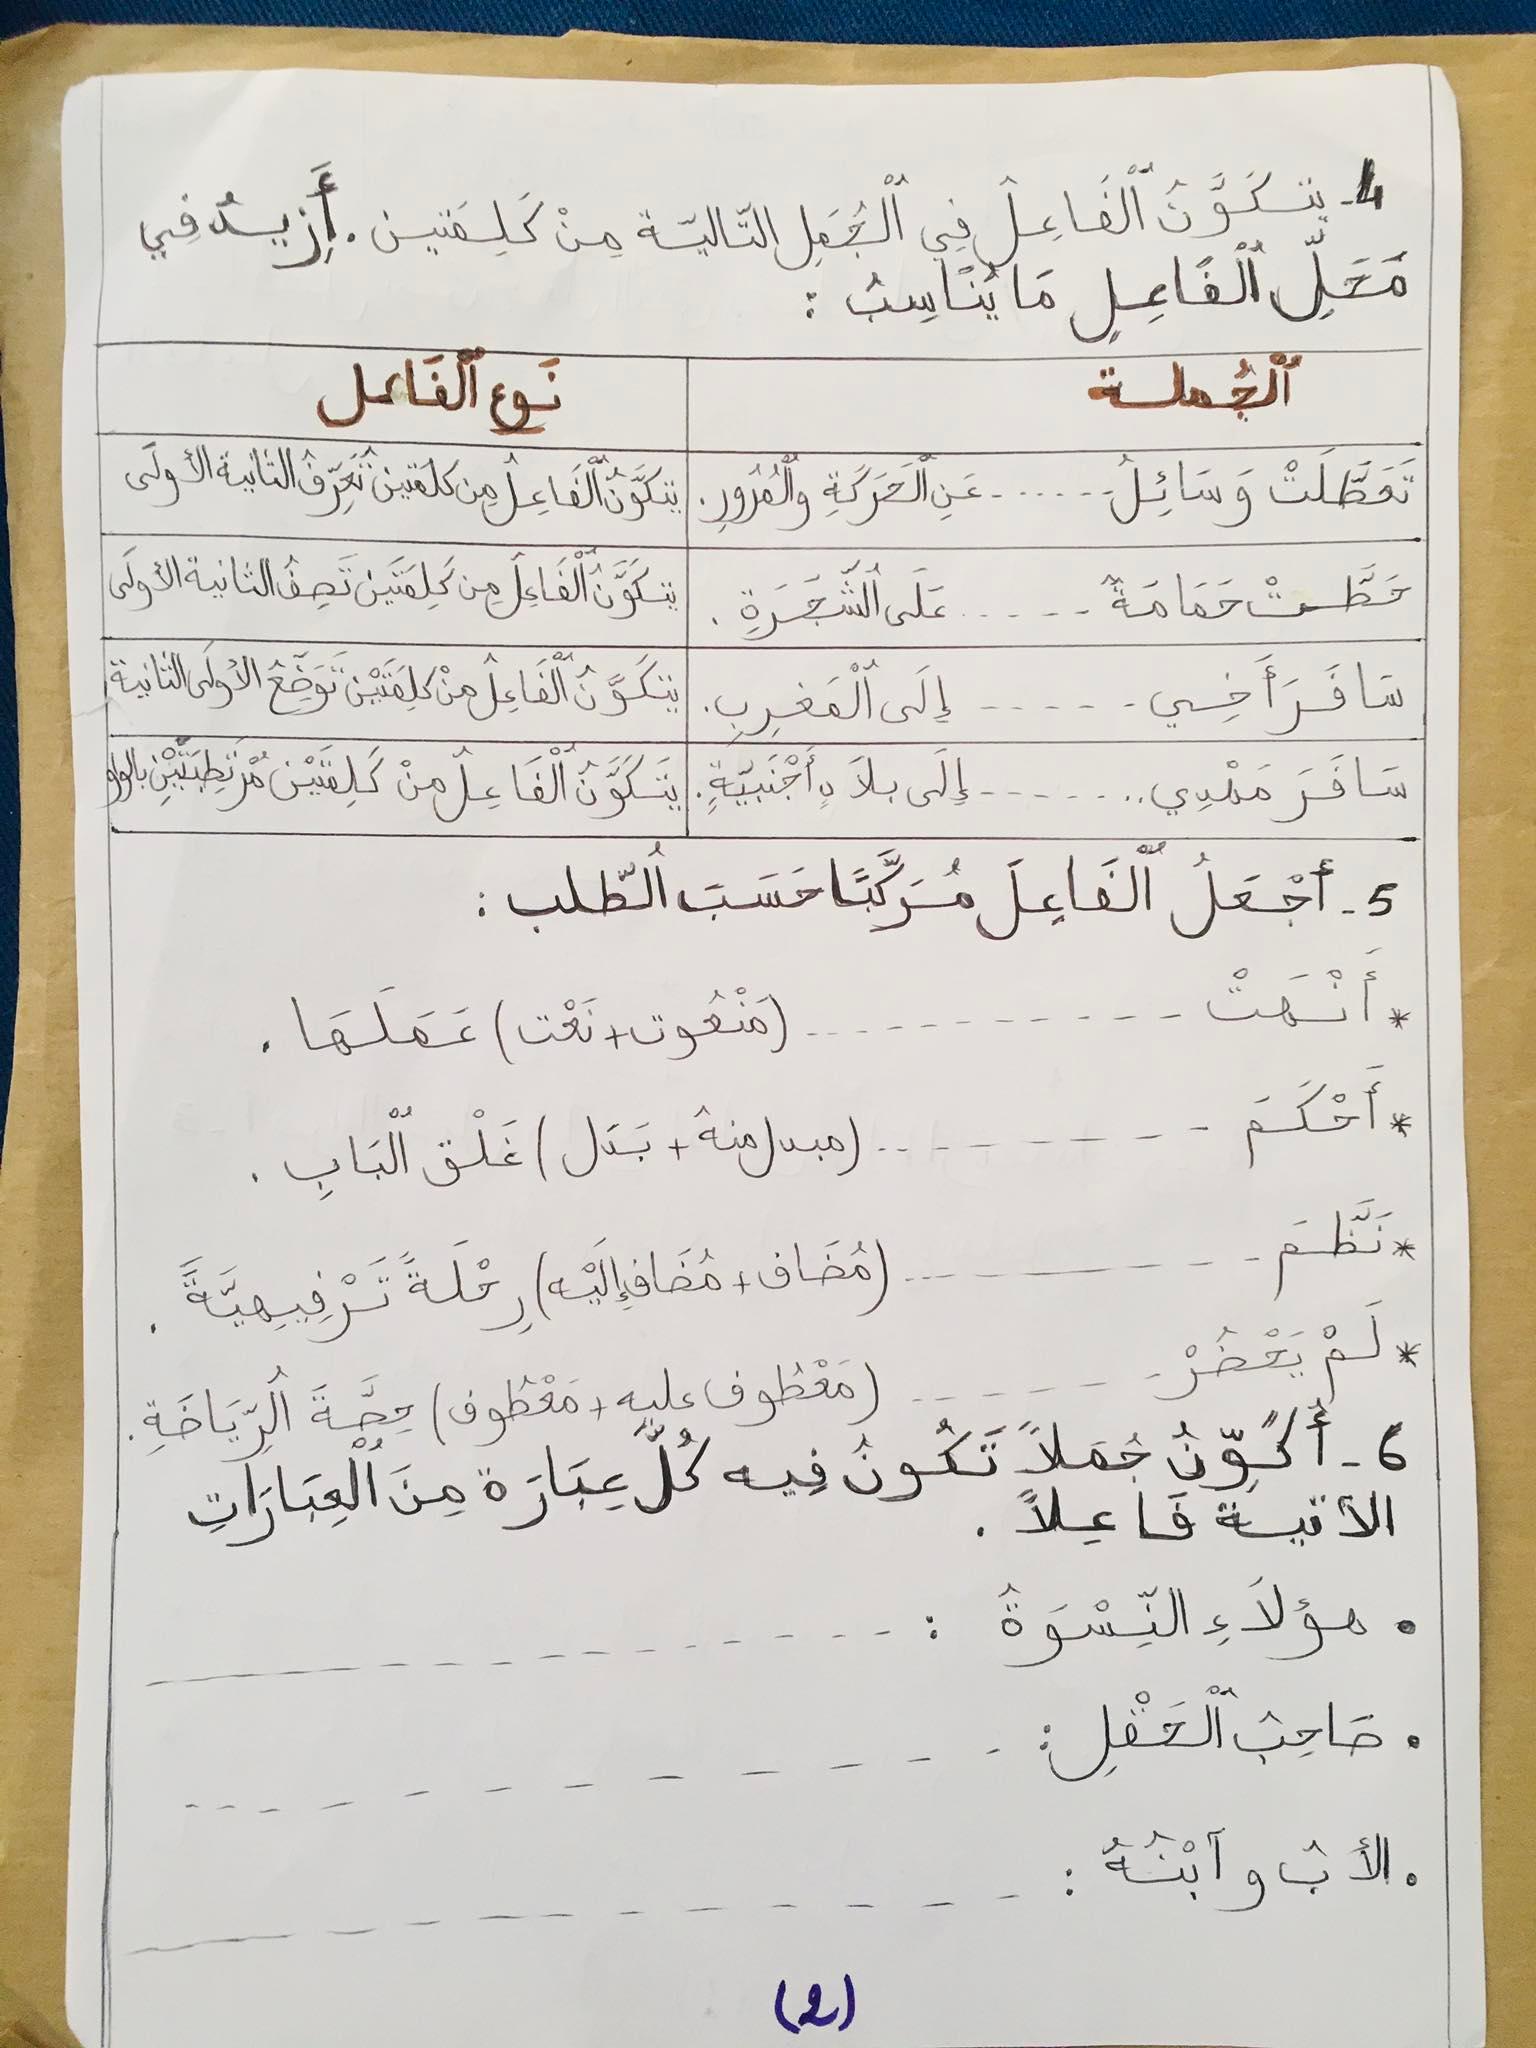 4- يتكَوَّنُ ٱلْفَاعِلُ فِي ٱلْجُمَلِ التّاليّة مِنْ كَلِمَتين. أَزِيدُ فِي
مَحَلِّ ٱلْفَاعِلِ مَا يُنَاسِبُ :
ٱلْجُملة نَوع ٱلْفَاعل
تَعَطَّلَتْ وَسَائِلُ ....... عَنِ ٱلْحَرَكَةِ وٱلْمُرُورِ. يتكَوَّنُ ٱلْفَاعِلُ مِن كلمَتين تُعَرِّفُ الثانية الأولَى
حَطَّتْ حَمَامَةٌ ....... عَلَى ٱلشَّجَرَةِ . يتكَوَّنُ ٱلْفَاعِلُ مِن كَلِمَتَيْن تَصِفُ الثانية الأولَى
سَافَرَ أَخِي ....... إِلَى ٱلْمَغرِبِ. يتكَوَّنُ ٱلْفَاعِلُ مِنْ كلِمَتَيْن تُوَضِّحُ الأولَى الثانية
سَافَرَ مَهْدِي ....... إِلَى بلاَدٍ أَجْنَبِيَّةٍ. يَتكَوَّنُ ٱلْفَاعِلُ مِنْ كَلِمَتَيْن مُرْتَبِطَتَيْنِ بالواو
5- أَجْعَلُ ٱلْفَاعِلَ مُرَكَّبًا حَسَبَ ٱلطّلب :
* أَنْهَتْ ........... (مَنْعُوت + نَعْت) عَمَلَهَا .
* أَحْكَمَ ........... (مبدل منهُ + بَدَل) غَلْق ٱلْبَابِ .
* نَظَّمَ ........... (مُضَاف + مُضَاف إِلَيْه) رِحْلَةً تَرْفِيهِيَّةً .
* لَمْ يَحْضُرْ ........... (مَعْطُوف عليه + مَعْطُوف) حِصَّةَ ٱلرِّيَاضَةِ.
6- أُكَوِّنُ جُمَلاً تَكُونُ فِيه كُلُّ عِبَارَة مِنَ ٱلْعِبَارَاتِ
الأتية فَاعِلاً .
• هؤلاَءِ النِّسْوَةُ : ...........
• صَاحِبُ ٱلْحَقْلِ : ...........
• الأبُ وٱبْنُهُ : ...........
(2)